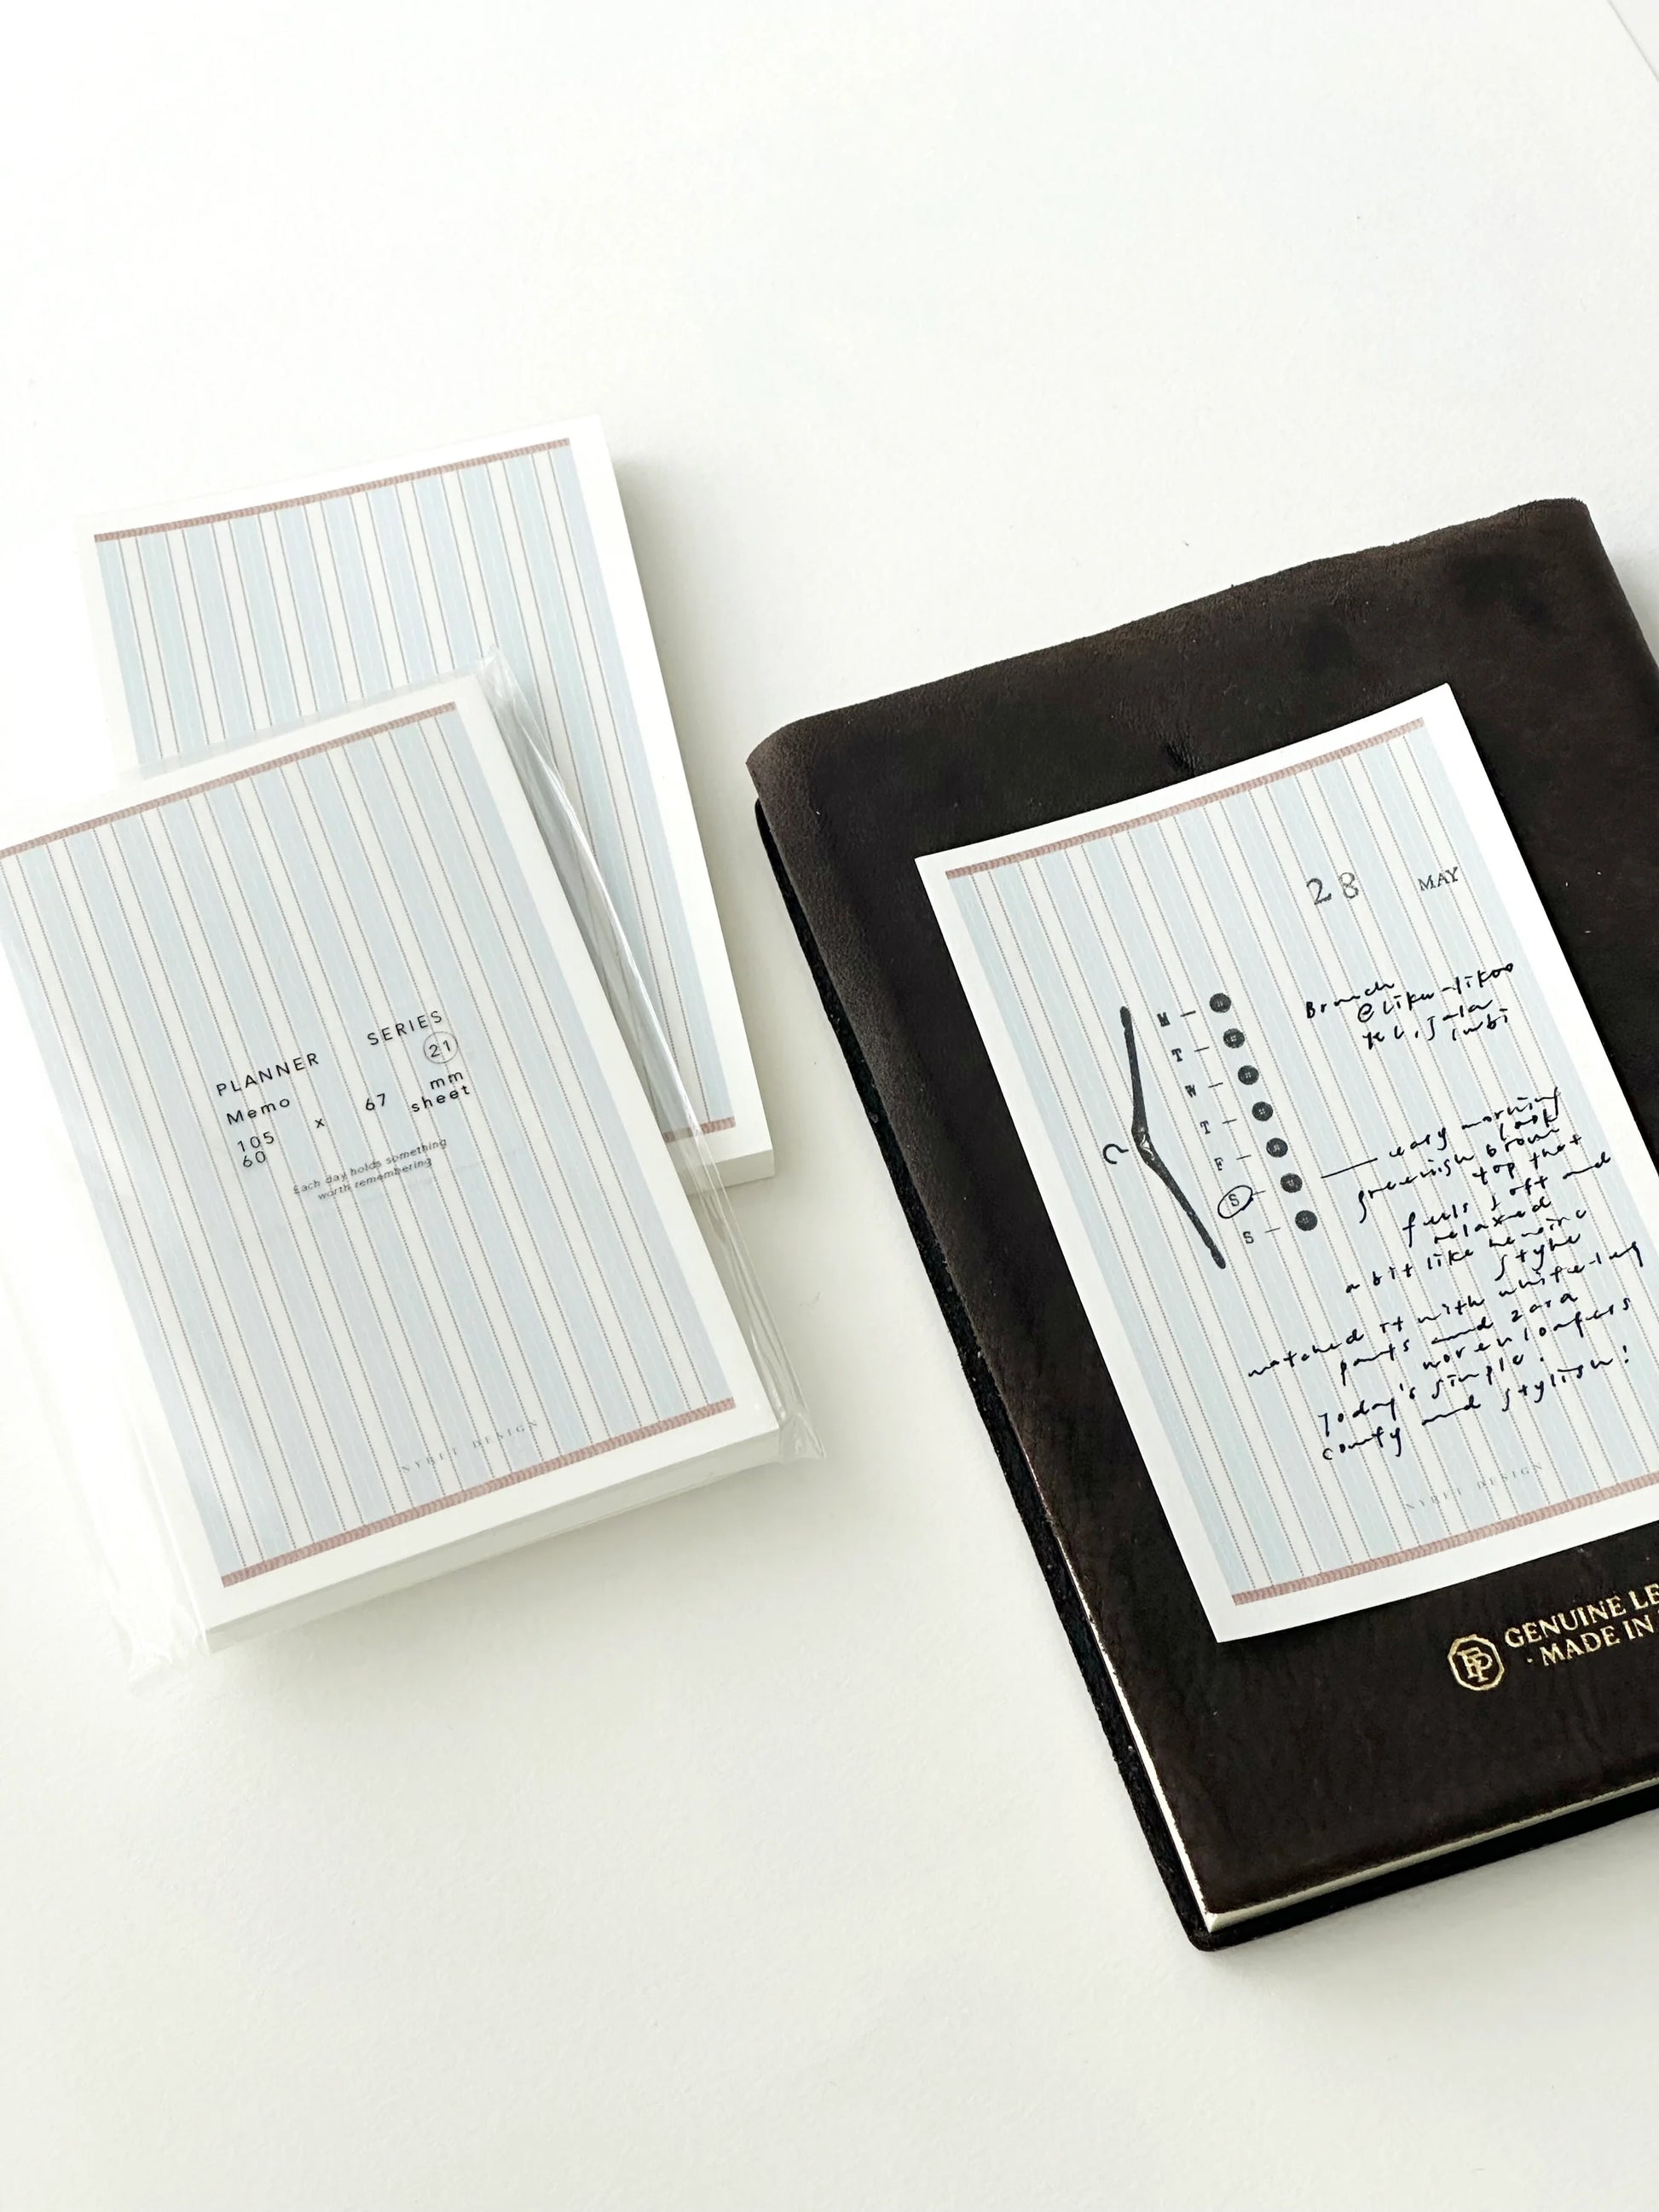 PLANNER SERIES
Memo 21
105 x 67 mm
60 sheet
Each day holds something
worth remembering
NYRET DESIGN
28 MAY
M
T
W
T
F
S
S
Brunch
@
easy morning
look
greenish brown
top that
feels soft and
relaxed
a bit like
style
matched it with white-ish
pants and zara
woven loafers
Today's simple.
comfy and stylish!
NYRET DESIGN
GENUINE
MADE IN